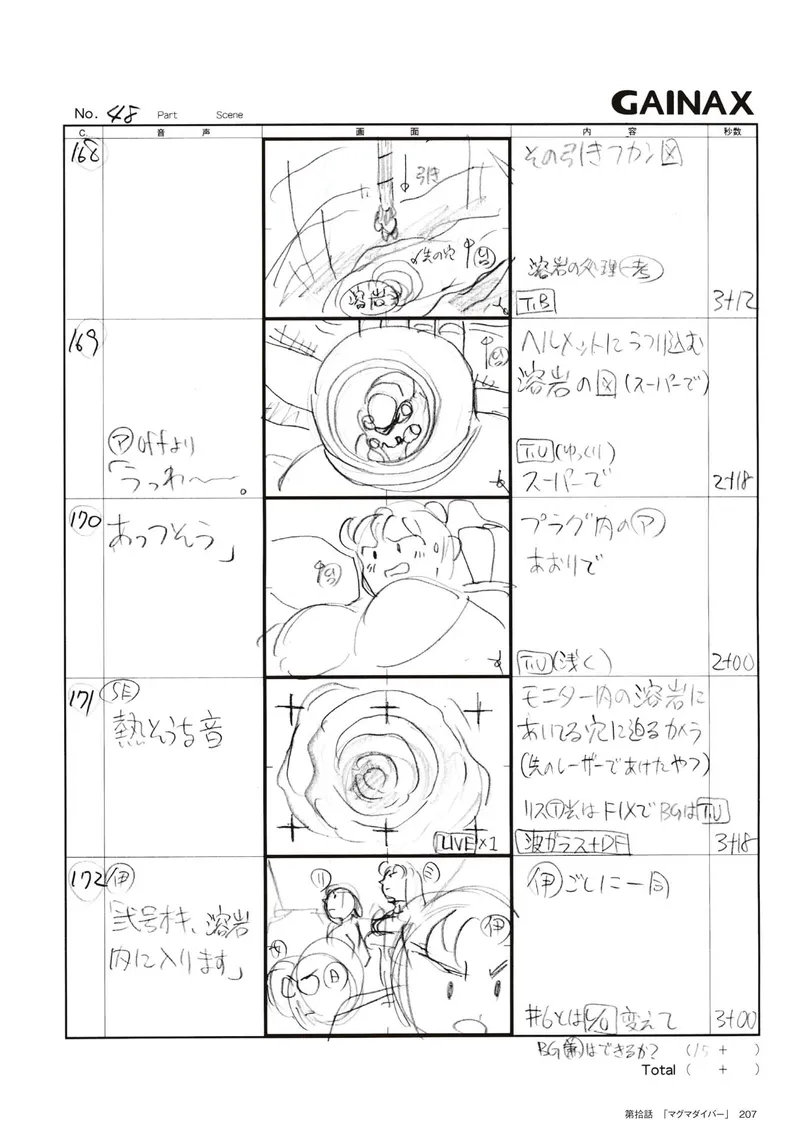 GAINAX
No. 48 Part Scene
C. 音声 画面 内容 秒数
168
引き
先の穴
溶岩
その引きフカン図
溶岩の処理一考
T.B
3+12
169
ア offより
「うっわ〜〜。
ヘルメットにうつり込む
溶岩の図(スーパーで)
T.U(ゆっくり)
スーパーで
2+18
170
あっつそう」
プラグ内のア
あおりで
T.U(浅く)
2+00
171
SE
熱そうな音
LIVE×1
モニター内の溶岩に
あいてる穴に迫るカメラ
(先のレーザーであけたやつ)
はFIXでBGはT.U
波ガラス+DF
3+18
172
伊
「弐号キ、溶岩
内に入ります」
リ
ミ
伊
A
伊ごしに一同
#6とはL/O変えて
3+00
BG兼はできるか?
(15 + )
Total ( + )
第拾話 「マグマダイバー」 207